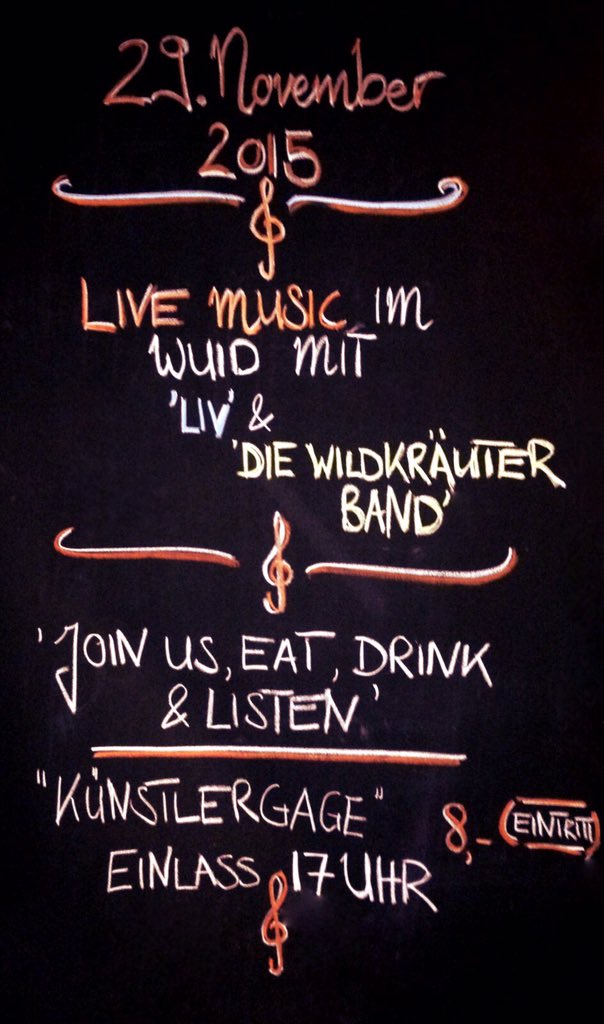 29. November
2015
LIVE MUSIC IM
WUID MIT
'LIV' &
'DIE WILDKRÄUTER
BAND'
'JOIN US, EAT, DRINK
& LISTEN'
"KÜNSTLERGAGE" 8,- EINTRITT
EINLASS 17 UHR